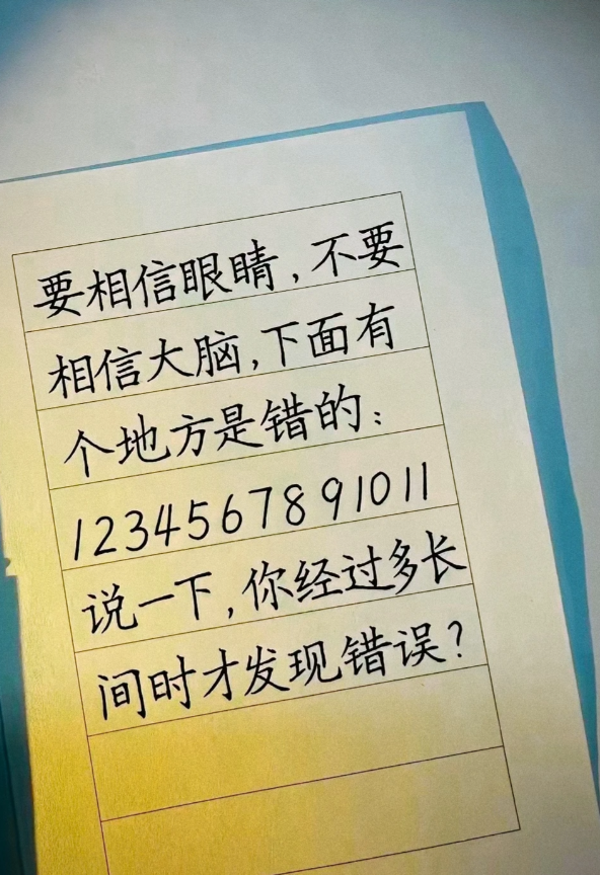 要相信眼睛,不要
相信大脑,下面有
个地方是错的:
1234567891011
说一下,你经过多长
间时才发现错误?